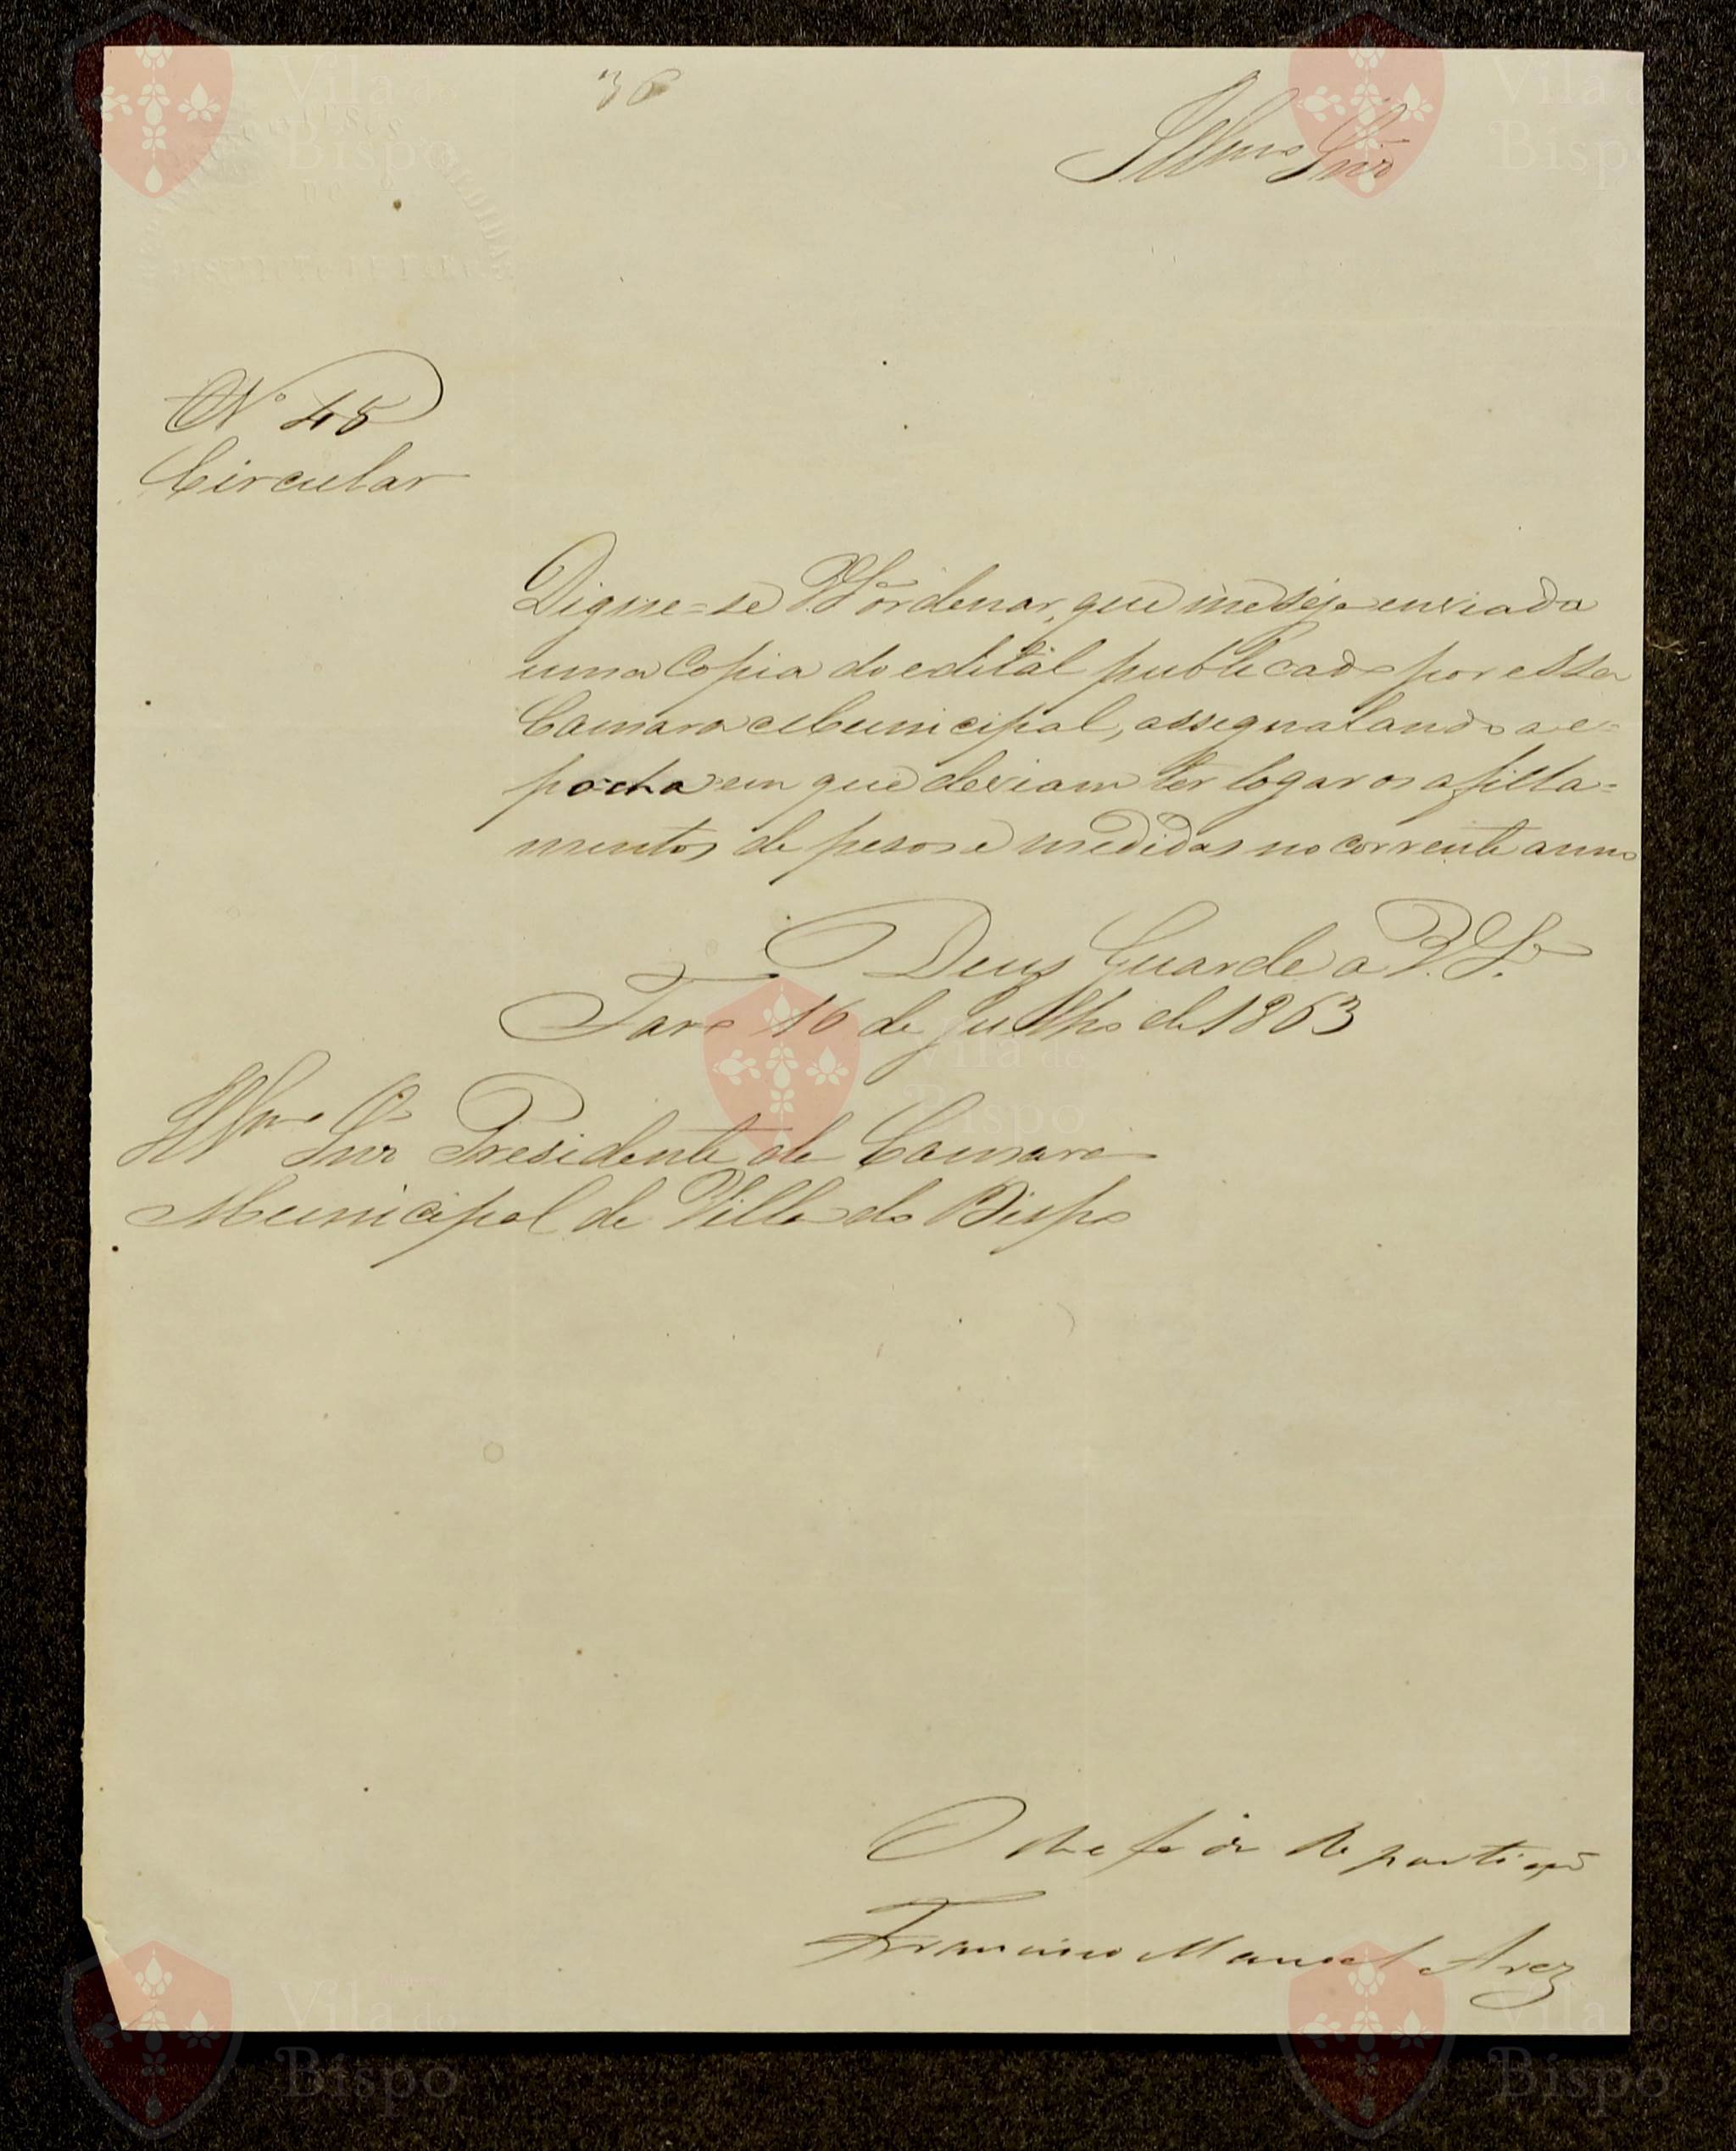 36
Illmo Snr
Nº 45
Circular
Digne=se V.Sª ordenar, que me seja enviada
uma Copia do edital publicado por essa
Camara Municipal, assegnalando a e=
pocha em que deviam ter logar os afilla=
mentos de pesos e medidas no corrente anno
Deus Guarde a V.Sª
Faro 16 de Julho de 1863
Illmo Snr Presidente da Camara
Municipal de Villa do Bispo
O chefe da Repartição
Francisco Manoel Arez
Vila do
Bispo